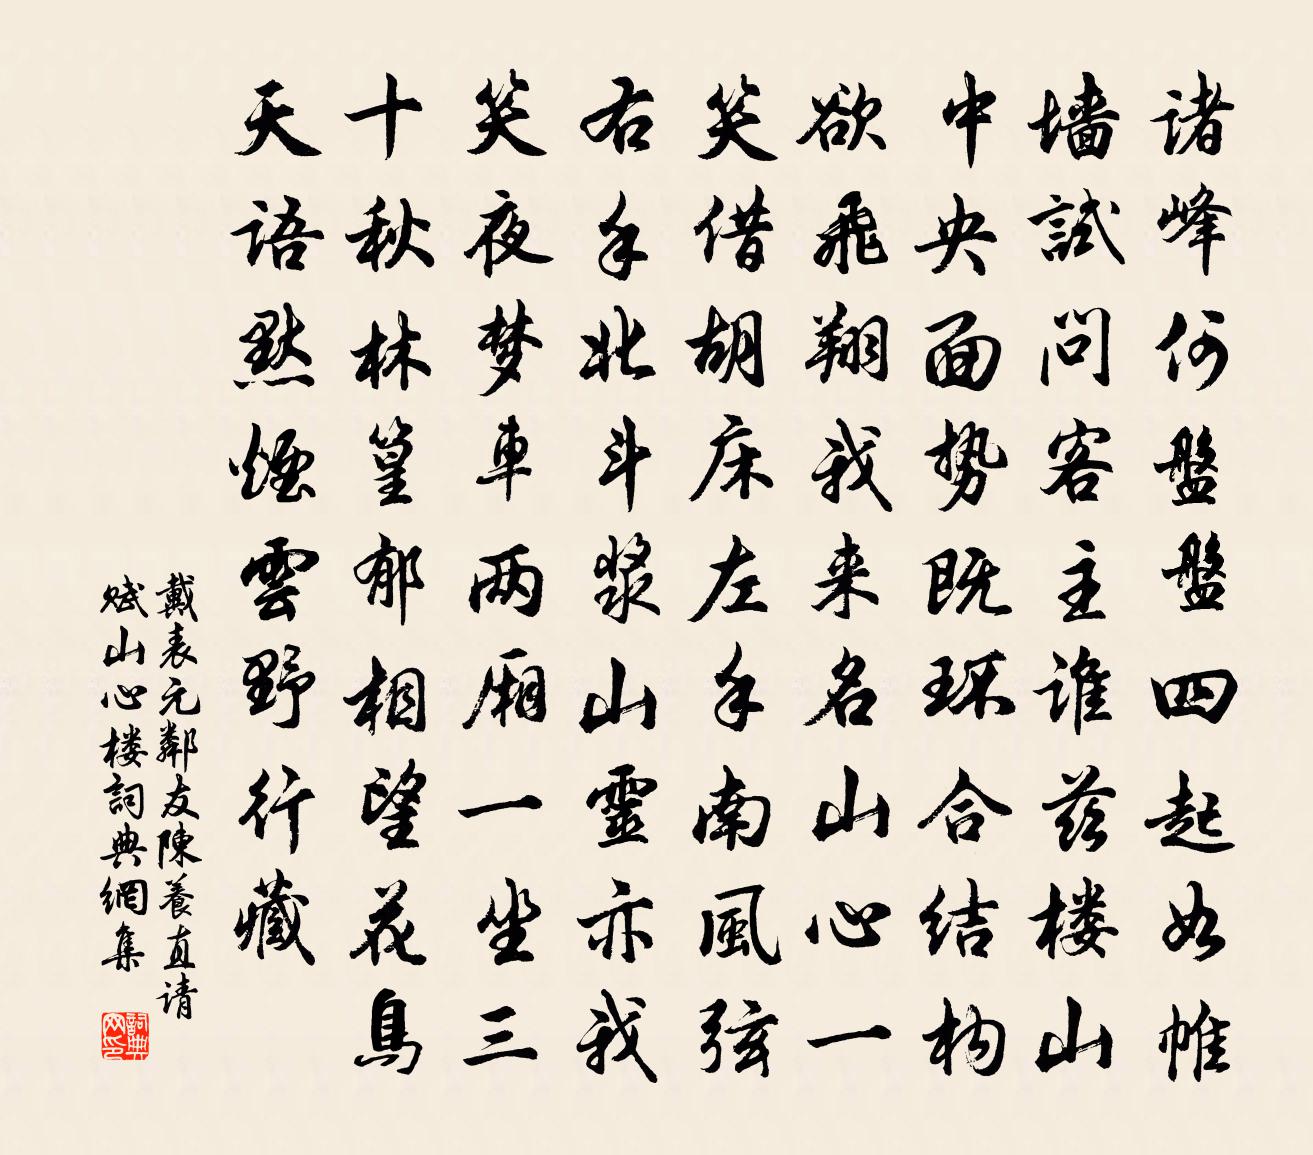 诸峰何盤盤四起如帷
墻試問客主谁兹楼山
中央面势既环合结构
欲飛翔我来名山心一
笑借胡床左手南風弦
右手北斗浆山靈亦我
笑夜梦車两厢一坐三
十秋林篁郁相望花鳥
天语默煙雲野行藏
戴表元鄰友陳養直请
赋山心楼詞典網集
詞典网印